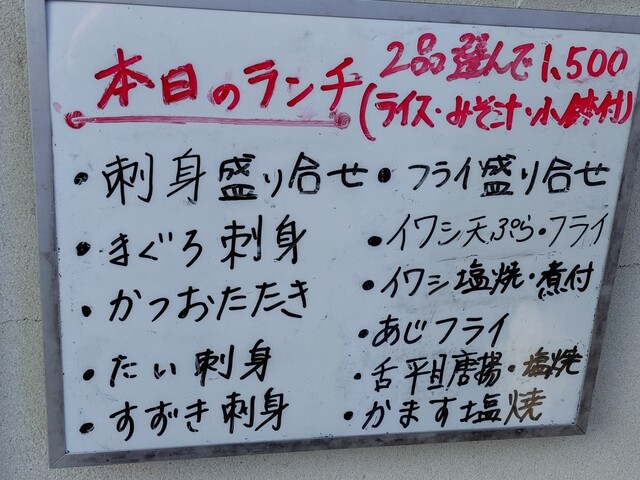 本日のランチ 2品選んで1,500
(ライス・みそ汁・小鉢付)
・刺身盛り合せ
・まぐろ刺身
・かつおたたき
・たい刺身
・すずき刺身
・フライ盛り合せ
・イワシ天ぷら・フライ
・イワシ塩焼・煮付
・あじフライ
・舌平目唐揚・塩焼
・かます塩焼